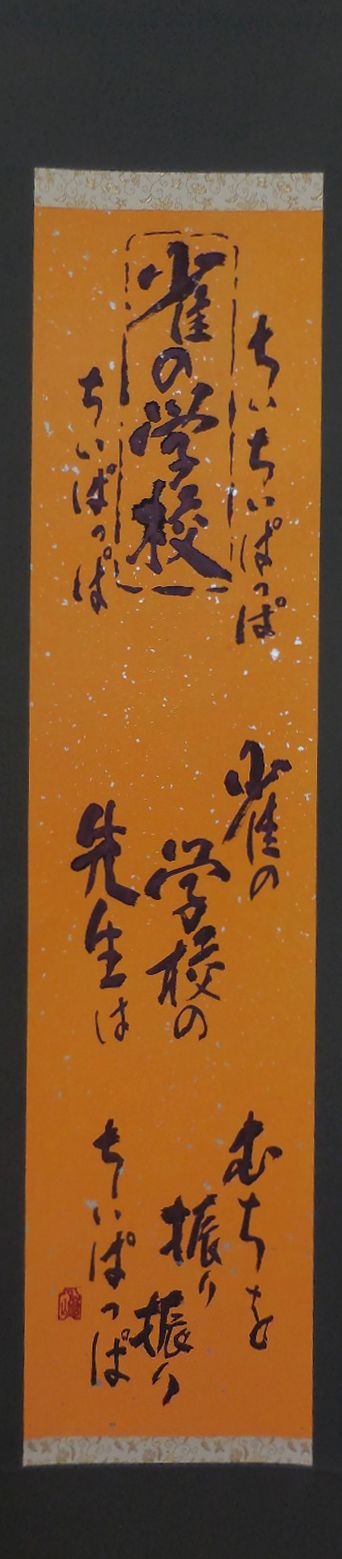 雀の学校
ちいちいぱっぱ
ちいぱっぱ
雀の
学校の
先生は
むちを
振り
振り
ちいぱっぱ